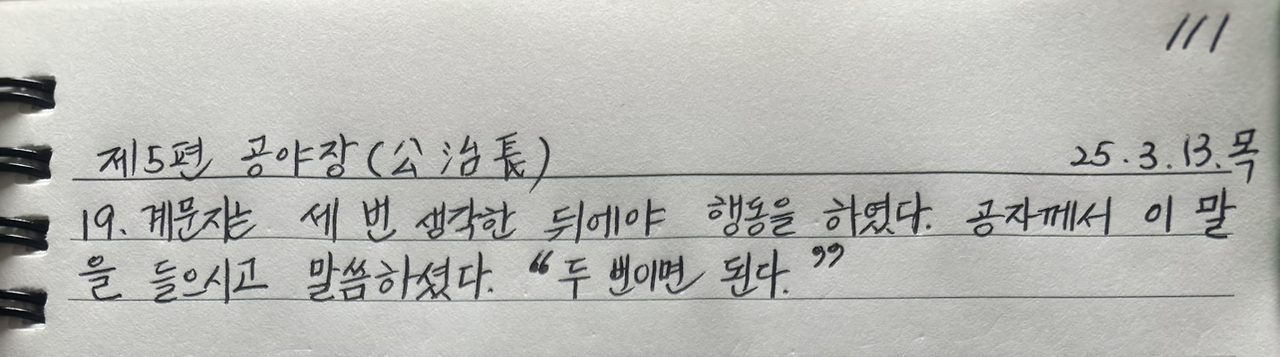 111
제5편 공야장(公治長) 25.3.13.목
19. 계문자는 세 번 생각한 뒤에야 행동을 하였다. 공자께서 이 말
을 들으시고 말씀하셨다. “두 번이면 된다.”